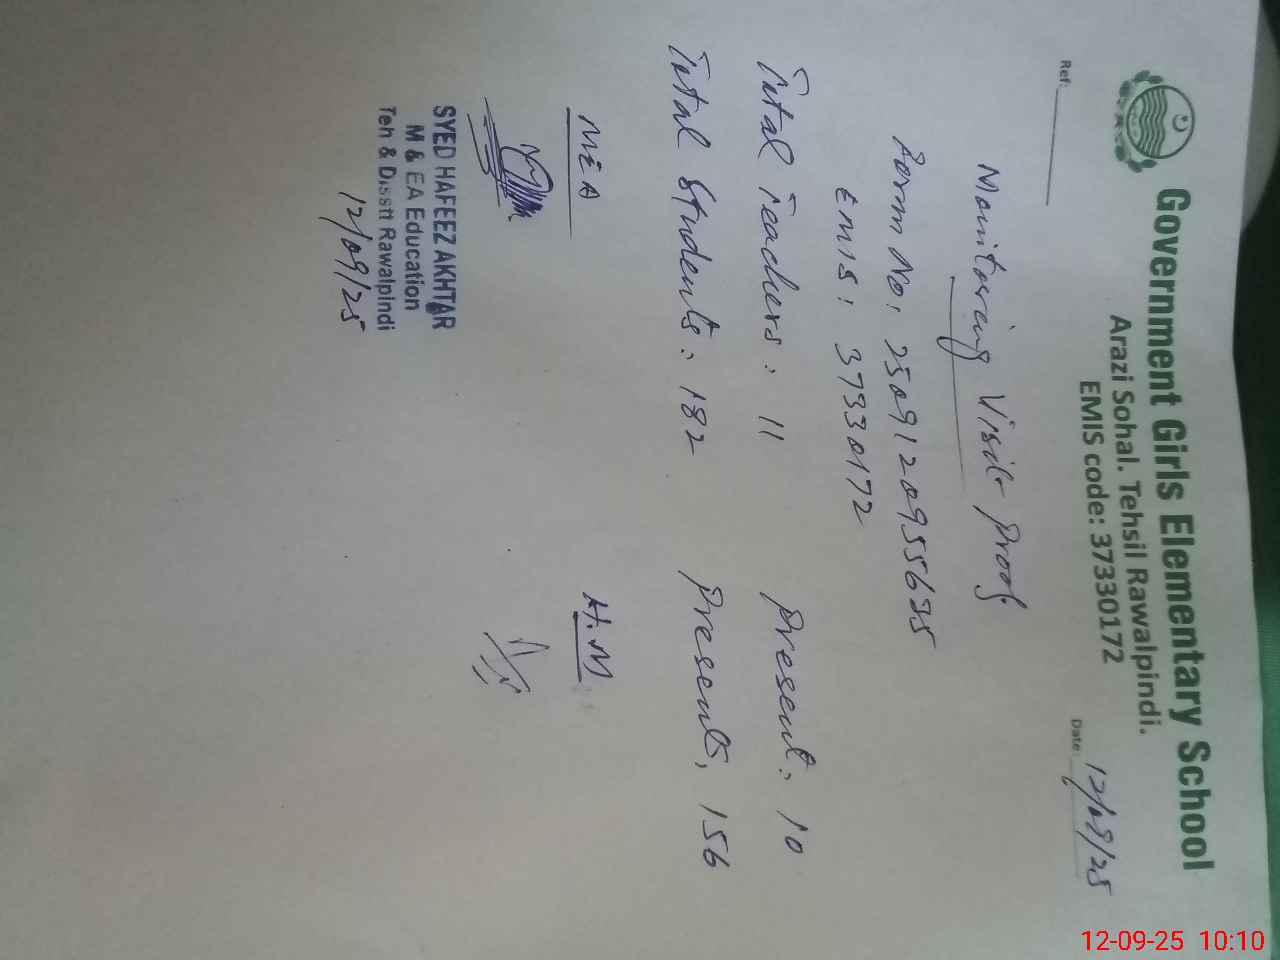 Government Girls Elementary School
Arazi Sohal. Tehsil Rawalpindi.
EMIS code: 37330172
Ref:
Date: 12/09/25
Monitoring Visit Proof
Form No: 2509120955635
EMIS: 37330172
Total Teachers: 11 Present: 10
Total Students: 182 Present: 156
MEA H.M
SYED HAFEEZ AKHTAR
M & EA Education
Teh & Disstt Rawalpindi
12/09/25
12-09-25 10:10